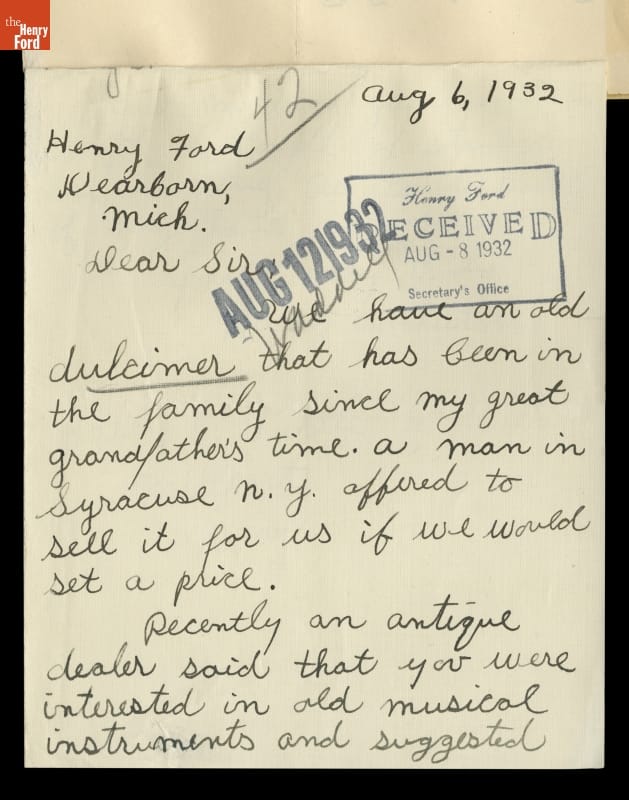 the
Henry
Ford
42
Aug 6, 1932
Henry Ford
Dearborn,
Mich.
Henry Ford
RECEIVED
AUG - 8 1932
Secretary's Office
AUG 12 1932
Waddell
Dear Sir,
We have an old
dulcimer that has been in
the family since my great
grandfather's time. A man in
Syracuse N.Y. offered to
sell it for us if we would
set a price.
Recently an antique
dealer said that you were
interested in old musical
instruments and suggested